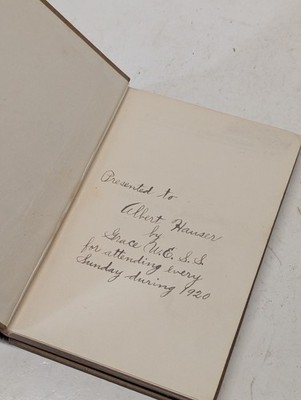 Presented to
Albert Hauser
by
Grace U.E. S.S.
for attending every
Sunday during 1920